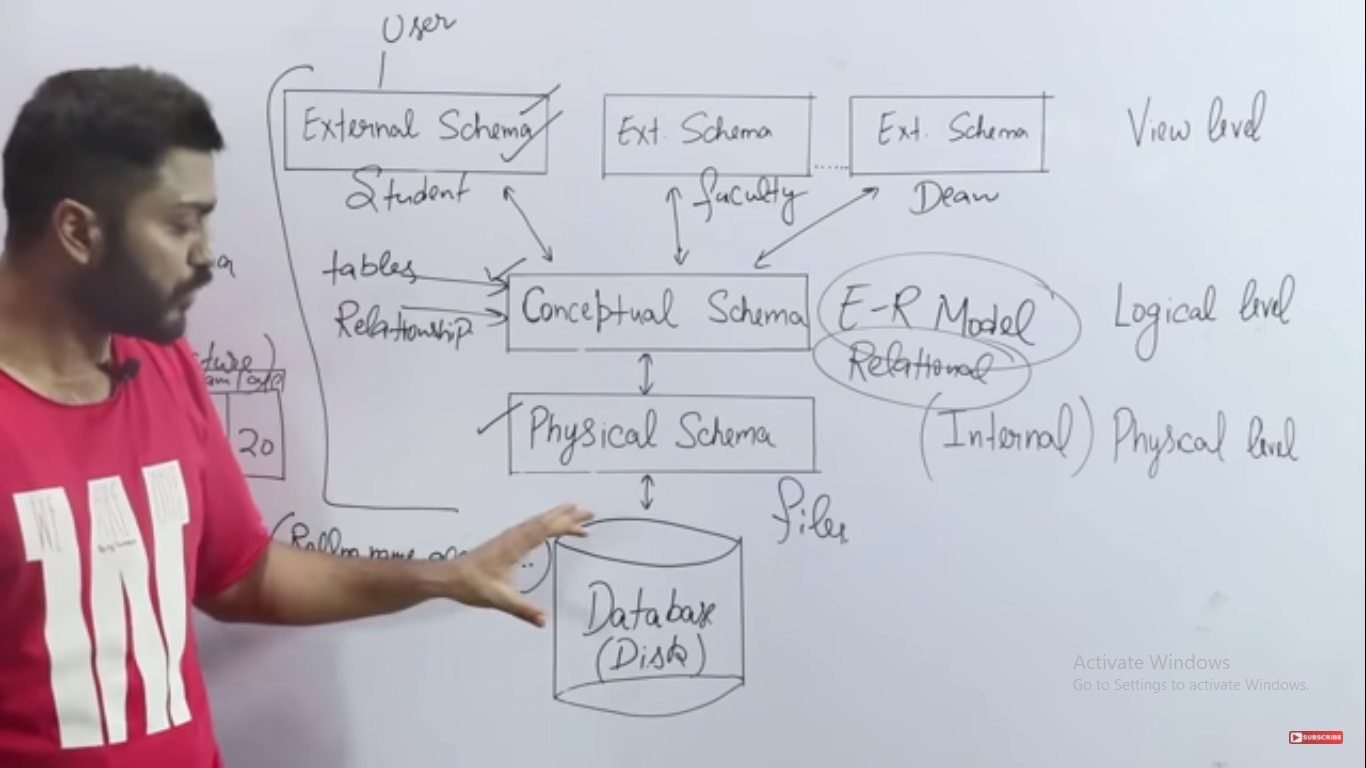 User
External Schema
Ext. Schema
Ext. Schema
View level
Student
faculty
Dean
tables
Relationship
Conceptual Schema
E-R Model
Relational
Logical level
Physical Schema
(Internal) Physical level
20
files
Database
(Disk)
Activate Windows
Go to Settings to activate Windows.
SUBSCRIBE